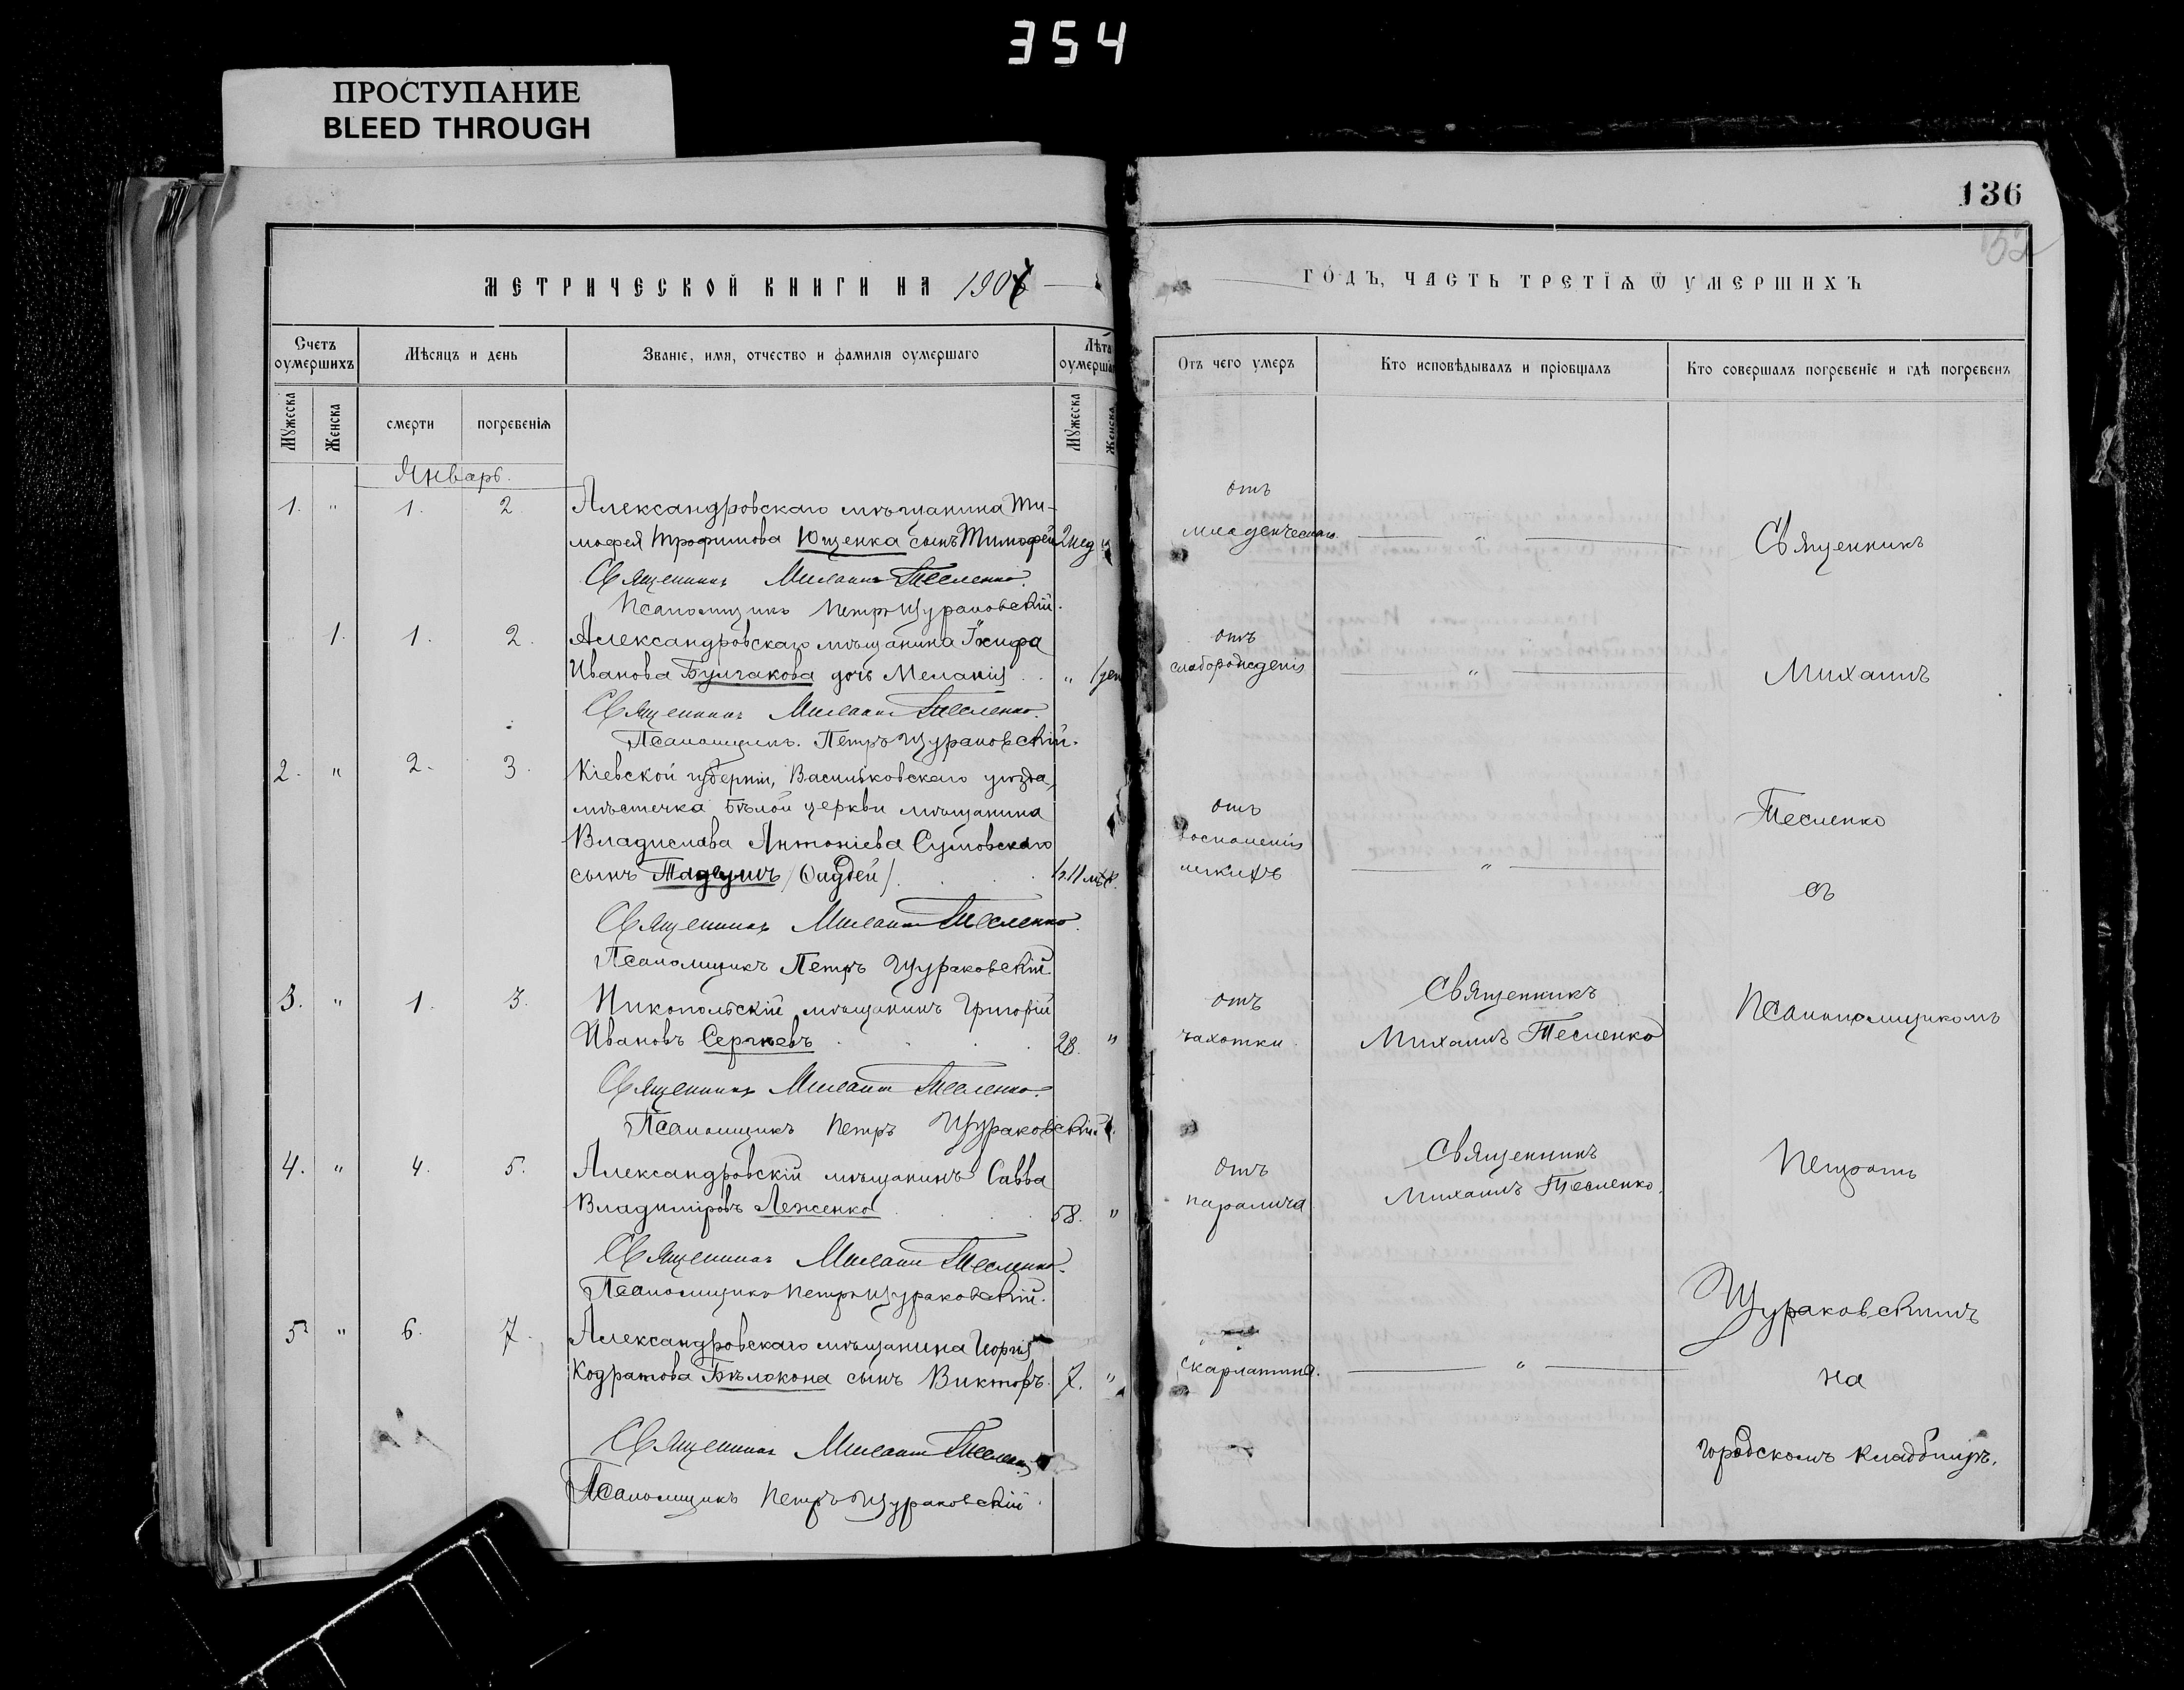 354
ПРОСТУПАНИЕ
BLEED THROUGH
136
МЕТРИЧЕСКОЙ КНИГИ НА 1907
ГОДЪ, ЧАСТЬ ТРЕТІѦ Ѿ УМЕРШИХЪ
Счетъ оумершихъ
Мѣсяцъ и день
Званіе, имя, отчество и фамилія оумершаго
Лѣта оумерша
Отъ чего умеръ
Кто исповѣдывалъ и пріобщалъ
Кто совершалъ погребеніе и гдѣ погребенъ
Мужеска
Женска
смерти
погребенія
Мужеска
Женска
Январь.
1. " 1. 2 Александровскаго мѣщанина Ти-
мофея Трофимова Ющенка сынъ Тимофей 2 нед "
отъ
младенческаго "
Священникъ Михаилъ Тесленко.
Псаломщикъ Петръ Щураковскій.
1. 1. 2. Александровскаго мѣщанина Іосифа
Иванова Булгакова дочь Меланія . . " 1 ден
отъ
слаборожденія "
Священникъ Михаилъ Тесленко.
Псаломщикъ. Петръ Щураковскій.
2. " 2. 3. Кіевской губерніи, Васильковскаго уѣзда,
мѣстечка Бѣлой церкви мѣщанина
Владислава Антоніева Сумовскаго
сынъ Тадеушъ /Фаддей/ . . . 11 мѣс.
отъ
воспаленія
легкихъ "
Священникъ Михаилъ Тесленко.
Псаломщикъ Петръ Щураковскій.
3. " 1. 3. Никопольскій мѣщанинъ Григорій
Ивановъ Сергѣевъ . . . . 28. "
отъ
чахотки.
Священникъ
Михаилъ Тесленко
Священникъ Михаилъ Тесленко.
Псаломщикъ Петръ Щураковскій.
4. " 4. 5. Александровскій мѣщанинъ Савва
Владиміровъ Леженко . . . 58. "
отъ
паралича
Священникъ
Михаилъ Тесленко.
Священникъ Михаилъ Тесленко.
Псаломщикъ Петръ Щураковскій.
5 " 6. 7. Александровскаго мѣщанина Георгія
Кодратова Бѣлокона сынъ Викторъ. 7. "
скарлатина. "
Священникъ Михаилъ Тесленко
Псаломщикъ Петръ Щураковскій.
Священникъ
Михаилъ
Тесленко
съ
Псаломщикомъ
Петромъ
Щураковскимъ
на
городскомъ кладбищѣ.